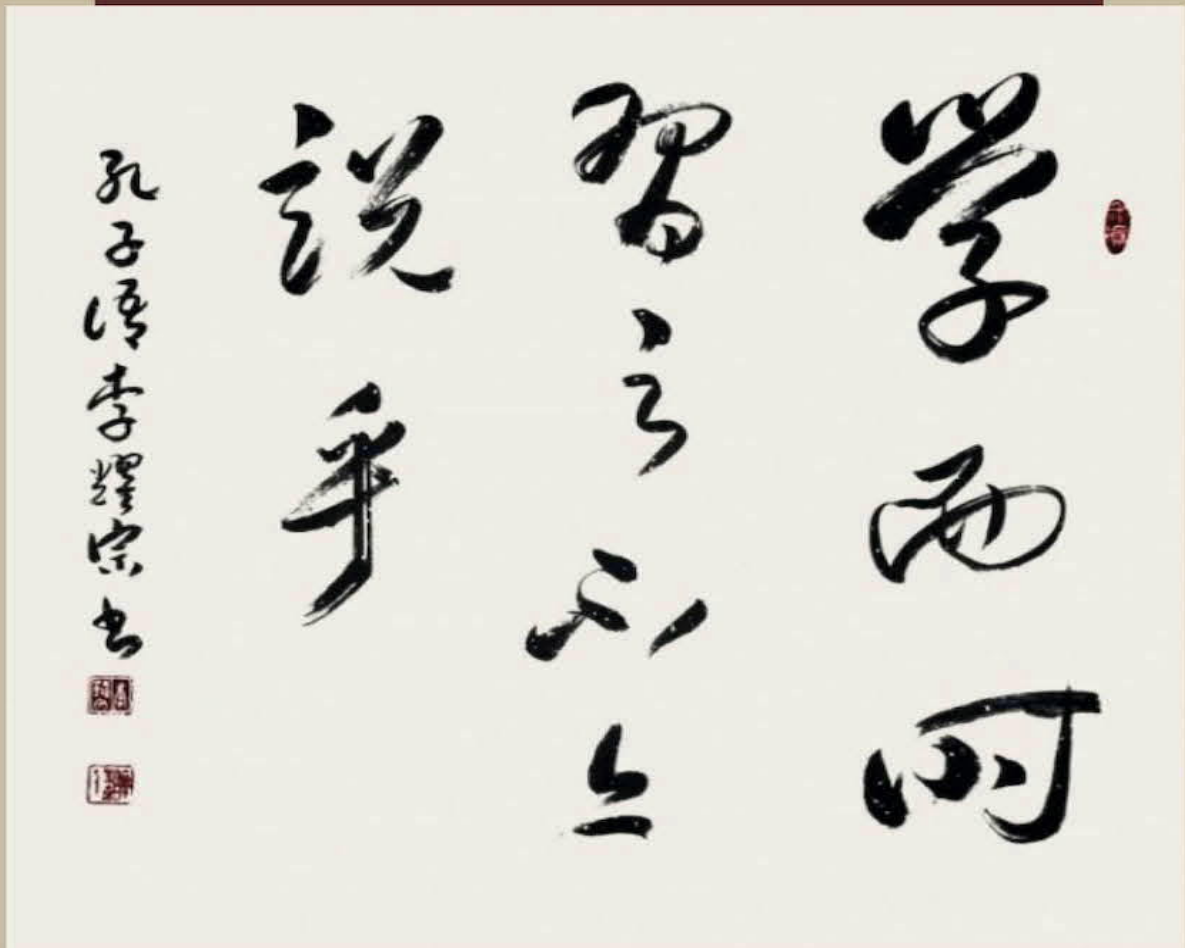 学而时
習之不亦
説乎
孔子语李耀宗书